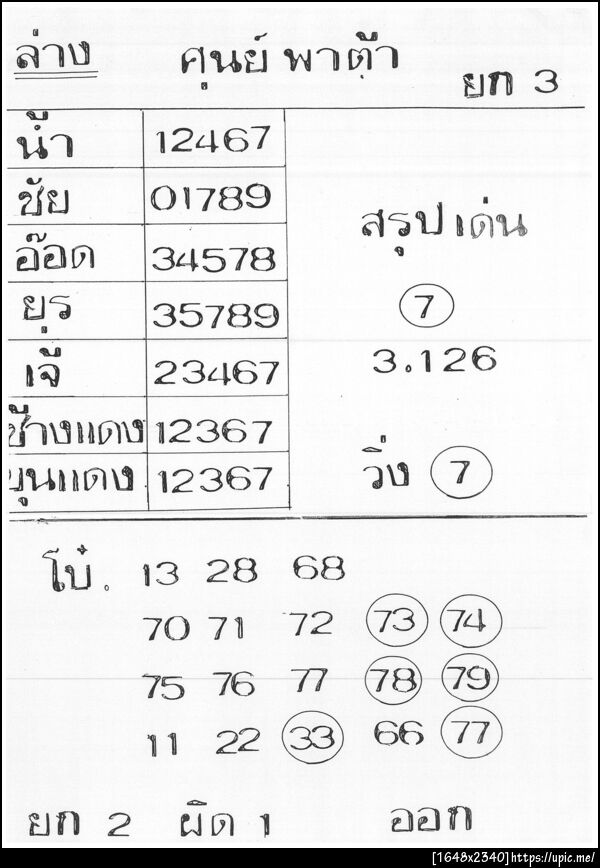 ล่าง ศูนย์ พาต้า ยก 3
น้ำ 12467
ชัย 01789
อ๊อด 34578
ยุร 35789
เจี๊ 23467
ช้างแดง 12367
ขุนแดง 12367
สรุปเด่น
7
3.126
วิ่ง 7
โบ๋. 13 28 68
70 71 72 73 74
75 76 77 78 79
11 22 33 66 77
ยก 2 ผิด 1 ออก
[1648x2340]https://upic.me/